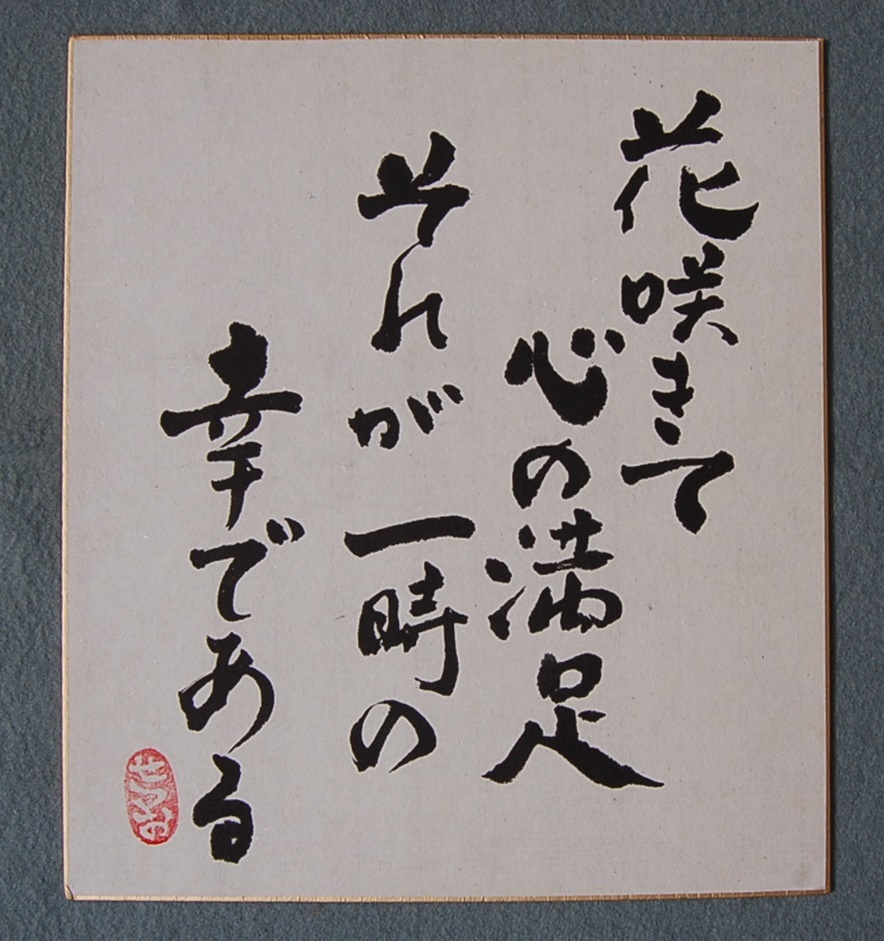 花咲きて
心の満足
それが一時の
幸である